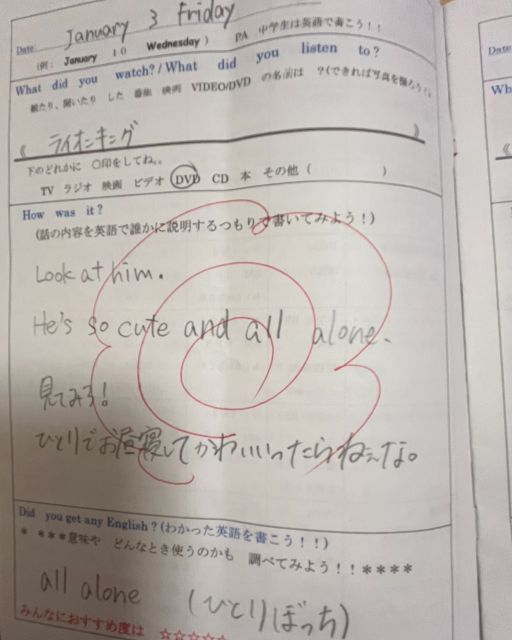 Date January 3 Friday
(例: January 10 Wednesday) PA 中学生は英語で書こう!!
What did you watch?/What did you listen to?
観たり、聞いたり した 番組 映画 VIDEO/DVD の名前は ?(できれば写真を撮ろう
《 ライオンキング 》
下のどれかに ○印をしてね。
TV ラジオ 映画 ビデオ DVD CD 本 その他 ( )
How was it?
(話の内容を英語で誰かに説明するつもりで書いてみよう!)
Look at him.
He's so cute and all alone.
見てみろ!
ひとりでお昼寝してかわいいったらねぇな。
Did you get any English?(わかった英語を書こう!!)
* ***意味や どんなとき使うのかも 調べてみよう!!****
all alone (ひとりぼっち)
みんなにおすすめ度は ☆☆☆☆☆
Date
Wh
《